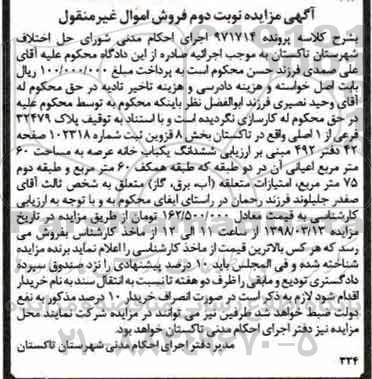 آگهی مزایده نوبت دوم فروش اموال غیر منقول
بشرح کلاسه پرونده ۹۷۱۷۱۴ اجرای احکام مدنی شورای حل اختلاف
شهرستان تاکستان به موجب اجرائیه صادره از این دادگاه محکوم علیه آقای
علی صمدی فرزند حسن محکوم است به پرداخت مبلغ ۱۰۰/۰۰۰/۰۰۰ ریال
بابت اصل خواسته و هزینه دادرسی و هزینه تاخیر تادیه در حق محکوم له
آقای وحید نصیری فرزند ابوالفضل نظر باینکه محکوم به توسط محکوم علیه
در حق محکوم له کارسازی نگردیده است و با استناد به توقیف پلاک ۳۲۴۷۹
فرعی از ۱ اصلی واقع در تاکستان بخش ۸ قزوین ثبت شماره ۱۰۲۳۱۸ صفحه
۴۲ دفتر ۴۹۲ مبنی بر ارزیابی ششدانگ یکباب خانه عرصه به مساحت ۶۰
متر مربع اعیانی آن در دو طبقه که طبقه همکف ۶۰ متر مربع و طبقه دوم
۷۵ متر مربع، امتیازات متعلقه (آب، برق، گاز) متعلق به شخص ثالث آقای
صفدر جلیلوند فرزند رحمان در راستای ایفای محکوم به و با توجه به ارزیابی
کارشناسی به قیمت معادل ۱۶۲/۵۰۰/۰۰۰ تومان از طریق مزایده در تاریخ
۱۳۹۸/۰۳/۱۳ از ساعت ۱۱ الی ۱۲ از ماخذ کارشناس بفروش می
رسد که هر کس بالاترین قیمت از ماخذ کارشناسی را اعلام نماید برنده مزایده
شناخته شده و فی المجلس باید ۱۰ درصد پیشنهادی را نزد صندوق سپرده
دادگستری تودیع و مابقی را ظرف دو هفته تا نسبت به انتقال سند به نام خریدار
اقدام شود لازم به ذکر است در صورت انصراف خریدار ۱۰ درصد مذکور به نفع
دولت ضبط خواهد شد طرفین نیز می توانند در مزایده شرکت نمایند محل
مزایده نیز دفتر اجرای احکام مدنی تاکستان خواهد بود.
مدیر دفتر اجرای احکام مدنی شهرستان تاکستان
۳۲۴